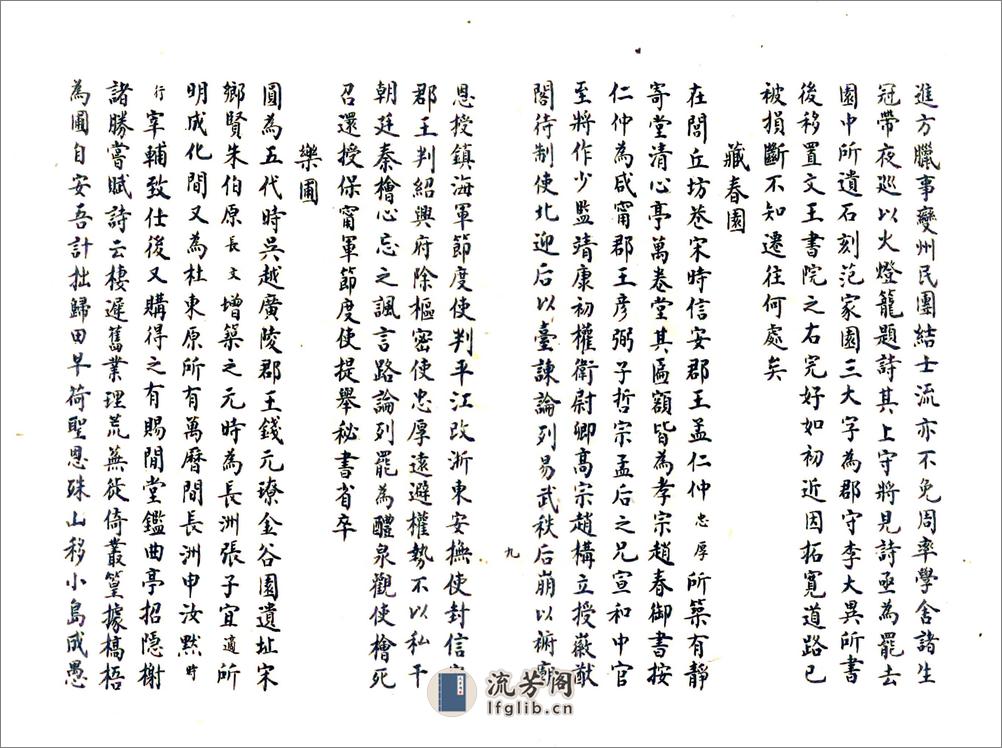 進方臘事變州民團結士流亦不免周率學舍諸生
冠帶夜巡以火燈籠題詩其上守將見詩亟為罷去
園中所遺石刻范家園三大字為郡守李大異所書
後移置文正書院之右完好如初近因拓寬道路已
被損斷不知遷往何處矣
藏春園
在閶丘坊巷宋時信安郡王孟仁仲忠厚所築有靜
寄堂清心亭萬卷堂其匾額皆為孝宗趙眘御書按
仁仲為咸甯郡王彥弼子哲宗孟后之兄宣和中官
至將作少監靖康初權衛尉卿高宗趙構立授徽猷
閣待制使北迎后以臺諫論列易武秩后崩以祔廟
恩授鎮海軍節度使判平江改浙東安撫使封信安
郡王判紹興府除樞密使忠厚遠避權勢不以私干
朝廷秦檜心忌之諷言路論列罷為醴泉觀使檜死
召還授保甯軍節度使提舉秘書省卒
樂圃
圃為五代時吳越廣陵郡王錢元璙金谷園遺址宋
鄉賢朱伯原長文增築之元時為長洲張子宜適所
明成化間又為杜東原所有萬曆間長洲申汝默時
行宰輔致仕後又購得之有賜閒堂鑑曲亭招隱榭
諸勝嘗賦詩云棲遲舊業理荒蕪徙倚叢篁據槁梧
為圃自安吾計拙歸田早荷聖恩殊山移小島成愚
九
流芳阁
lfglib.cn